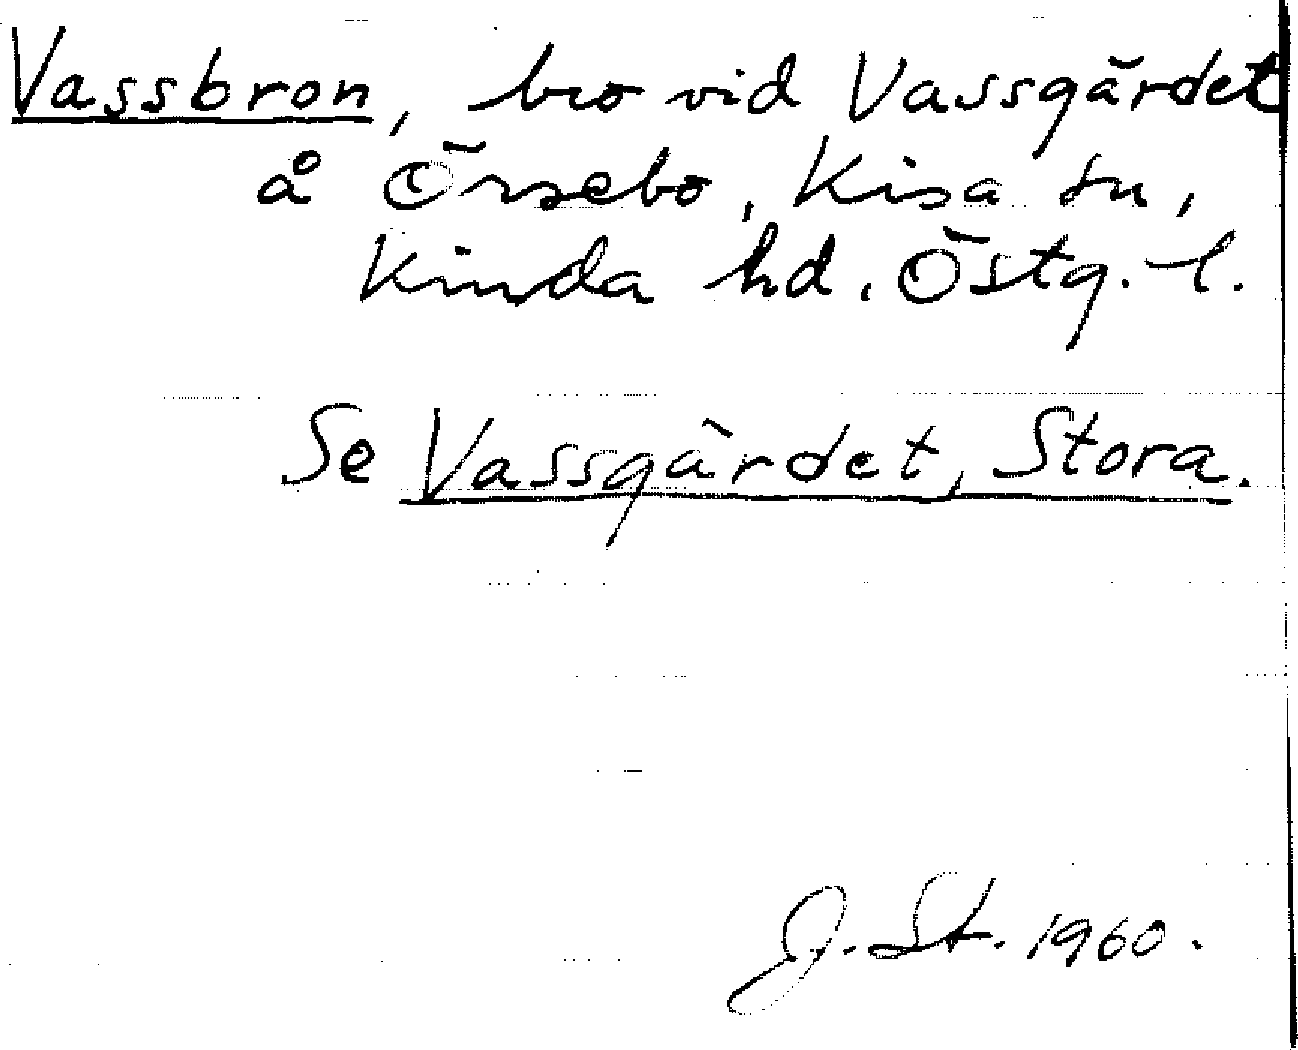 Vassbron, bro vid Vassgärdet
å Örsebo, Kisa sn,
Kinda hd, Östg. l.
Se Vassgärdet, Stora.
J. St. 1960.